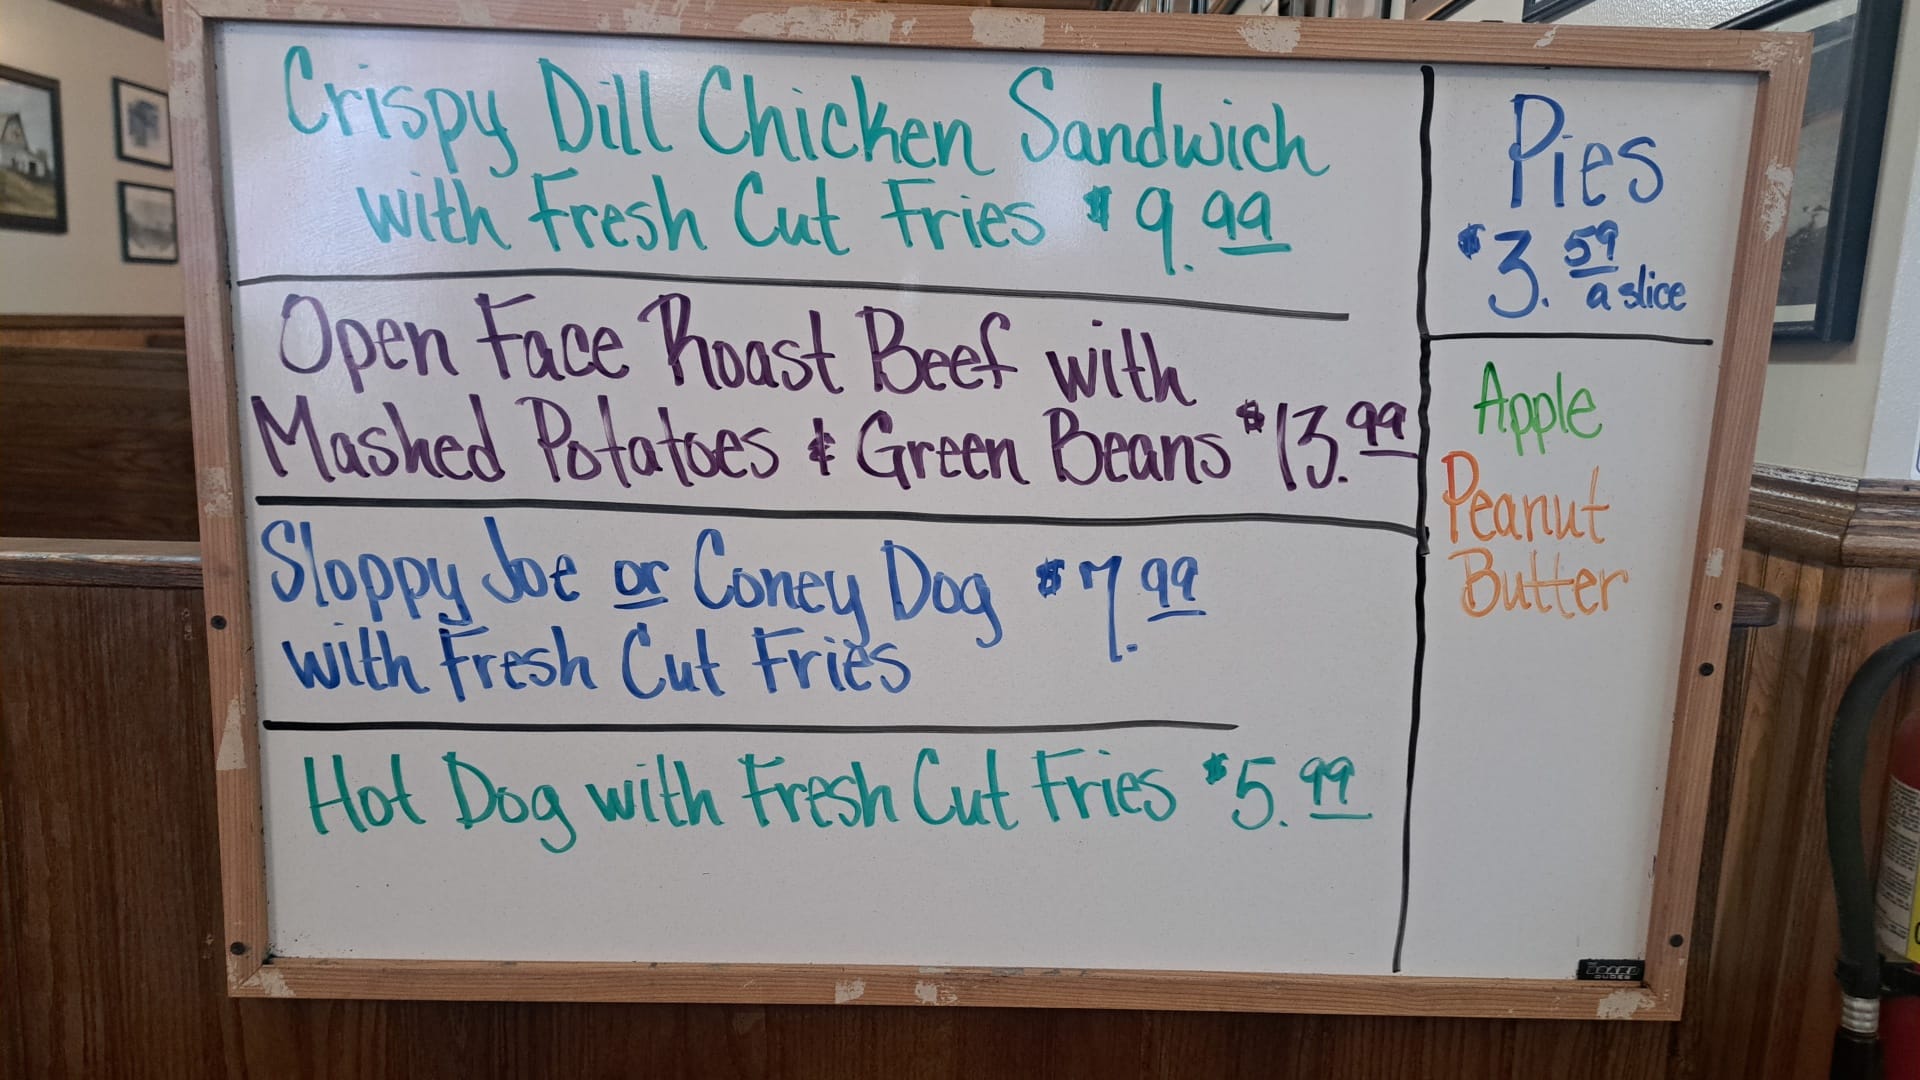 Crispy Dill Chicken Sandwich
with Fresh Cut Fries $9.99
Open Face Roast Beef with
Mashed Potatoes & Green Beans $13.99
Sloppy Joe or Coney Dog $7.99
with Fresh Cut Fries
Hot Dog with Fresh Cut Fries $5.99
Pies
$3.59
a slice
Apple
Peanut
Butter
BOARD
DUDES